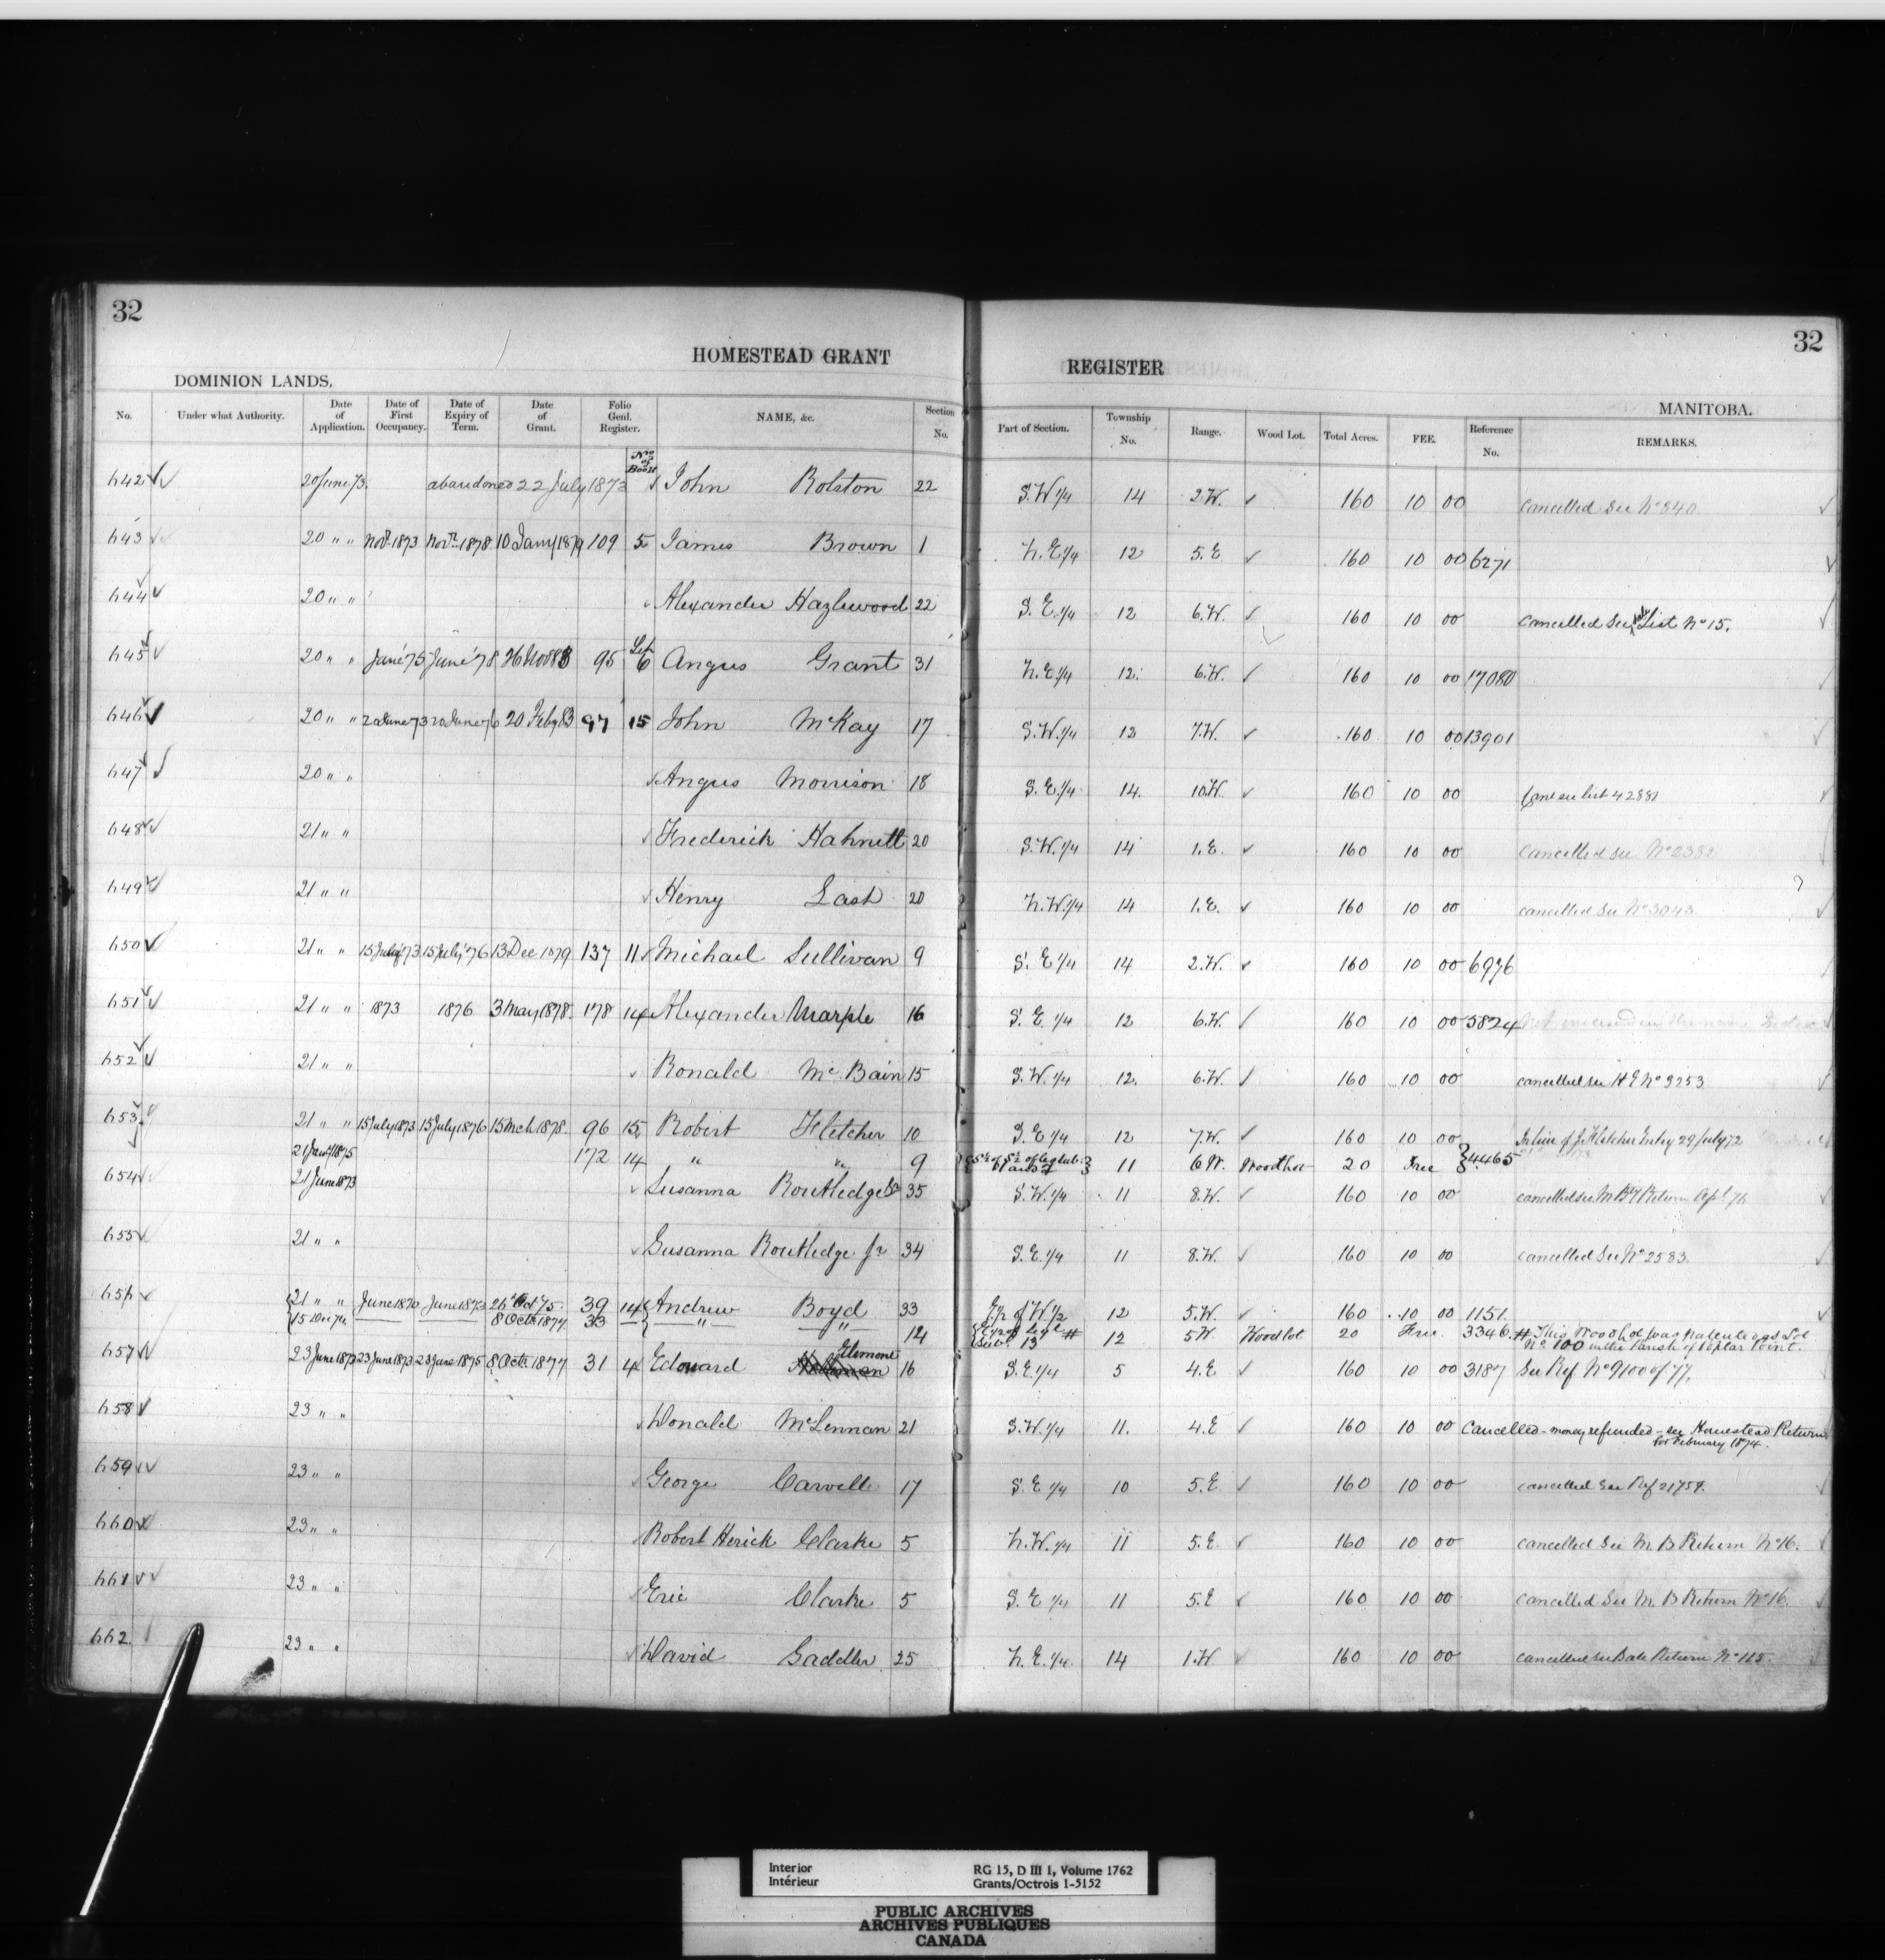 32
32
HOMESTEAD GRANT REGISTER
DOMINION LANDS,
MANITOBA.
No. Under what Authority. Date of Application. Date of First Occupancy. Date of Expiry of Term. Date of Grant. Folio Genl. Register. No of Book NAME, &c. Section No. Part of Section. Township No. Range. Wood Lot. Total Acres. FEE. Reference No. REMARKS.
642 20 June 73. abandoned 22 July 1873 John Rolston 22 S.W. 1/4 14 2.W. 160 10 00 cancelled See No 840
643 20 " " Novr 1873 Novr 1878 10 Jany 1879 109 5 James Brown 1 N.E. 1/4 12 5.E 160 10 00 6271
644 20 " " Alexander Hazlewood 22 S.E. 1/4 12 6.W. 160 10 00 cancelled See List No 15.
645 20 " " June '75 June '78 26 Nov 88 95 6 Angus Grant 31 N.E. 1/4 12 6.W. 160 10 00 17080
646 20 " " 20 June 73 20 June 76 20 Feby 83 97 15 John McKay 17 S.W. 1/4 12 7.W. 160 10 00 13901
647 20 " " Angus Morrison 18 S.E. 1/4 14 10.W. 160 10 00 42881
648 21 " " Frederick Hahnett 20 S.W. 1/4 14 1.E. 160 10 00 Cancelled See No 2382
649 21 " " Henry Last 20 N.W. 1/4 14 1.E. 160 10 00 cancelled See No 3043
650 21 " " 15 July '73 15 July '76 13 Dec 1879 137 11 Michael Sullivan 9 S.E. 1/4 14 2.W. 160 10 00 6976
651 21 " " 1873 1876 3 May 1878. 178 14 Alexander Marple 16 S.E. 1/4 12 6.W. 160 10 00 5824
652 21 " " Ronald McBain 15 S.W. 1/4 12. 6.W. 160 10 00 cancelled see H G No 3253
653 21 " " 15 July 1873 15 July 1876 15 Mch 1878. 96 15 Robert Fletcher 10 S.E. 1/4 12 7.W. 160 10 00 In lieu of J. Fletcher Entry 29 July 72
21 Jany 1875 172 14 " " 9 S 1/2 of S 1/2 of leg sub: 11 6 W. Woodlot 20 Free 4465
654 21 June 1873 Susanna Routledge Sr 35 S.W. 1/4 11 8.W. 160 10 00 cancelled see M B Return Apl 76
655 21 " " Susanna Routledge Jr 34 S.E. 1/4 11 8.W. 160 10 00 cancelled See No 2583.
656 21 " " June 1870 June 1873 26 Oct 75. 39 14 Andrew Boyd 33 E 1/2 of W. 1/2 12 5.W. 160 10 00 1151
15 Dec 74 8 Octr 1877. 33 " " 14 12 5 W Woodlot 20 Free. 3346 # This Woodlot was patented as Lot No 100 in the Parish of Poplar Point.
657 23 June 1873 23 June 1873 23 June 1875 8 Octr 1877 31 4 Edouard 16 S.E. 1/4 5 4.E 160 10 00 3187 See Ref No 9100 of 77.
658 23 " " Donald McLennan 21 S.W. 1/4 11. 4.E 160 10 00 Cancelled - money refunded - see Homestead Return
for February 1874.
659 23 " " George Carvell 17 S.E. 1/4 10 5.E. 160 10 00 cancelled See Ref 21759.
660 23 " " Robert Herick Clarke 5 N.W. 1/4 11 5.E. 160 10 00 cancelled See M. B Return No 16.
661 23 " " Eric Clarke 5 S.E. 1/4 11 5.E 160 10 00 cancelled See M. B Return No 16.
662. 23 " " David Saddler 25 N.E. 1/4 14 1.W 160 10 00 cancelled See Return No 115.
Interior
Intérieur
RG 15, D III 1, Volume 1762
Grants/Octrois 1-5152
PUBLIC ARCHIVES
ARCHIVES PUBLIQUES
CANADA